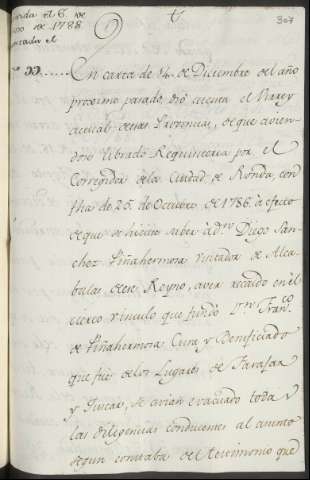 307
En carta de 14. de Diciembre del año
proximo pasado, dió cuenta el Virrey
actual de esas Provincias, de que avien-
dose librado Requisitoria por el
Corregidor de la Ciudad de Ronda, con
fha de 25. de Octubre de 1786. á efecto
de que se hiciese saber à dn. Diego San-
chez Piñahermosa Visitador de Alca-
balas de ese Reyno, aver recaido en èl
el cierco vinculo que fundó Dn. Franco.
de Piñahermosa Cura y Beneficiado
que fué de los Lugares de Faraxan
y Juscar, se avian evacuado toda s
las diligencias conducentes al asunto
segun constaba del testimonio que